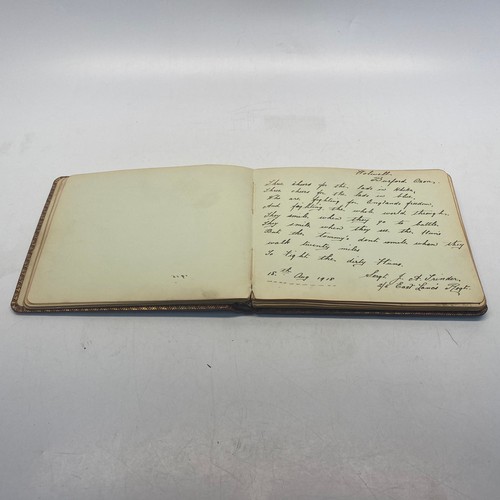 Burford Oxon.
Three cheers for the lads in Khaki,
Three cheers for the lads in blue,
Who are fighting for Englands freedom,
And fighting the whole world through.
They smile when they go to battle
They smile when they see the Huns
But the Tommy's dont smile when they
walk twenty miles
To fight the dirty Huns.
18th Aug 1918
Sergt J. A. Trinder.
East Lancs Regt.